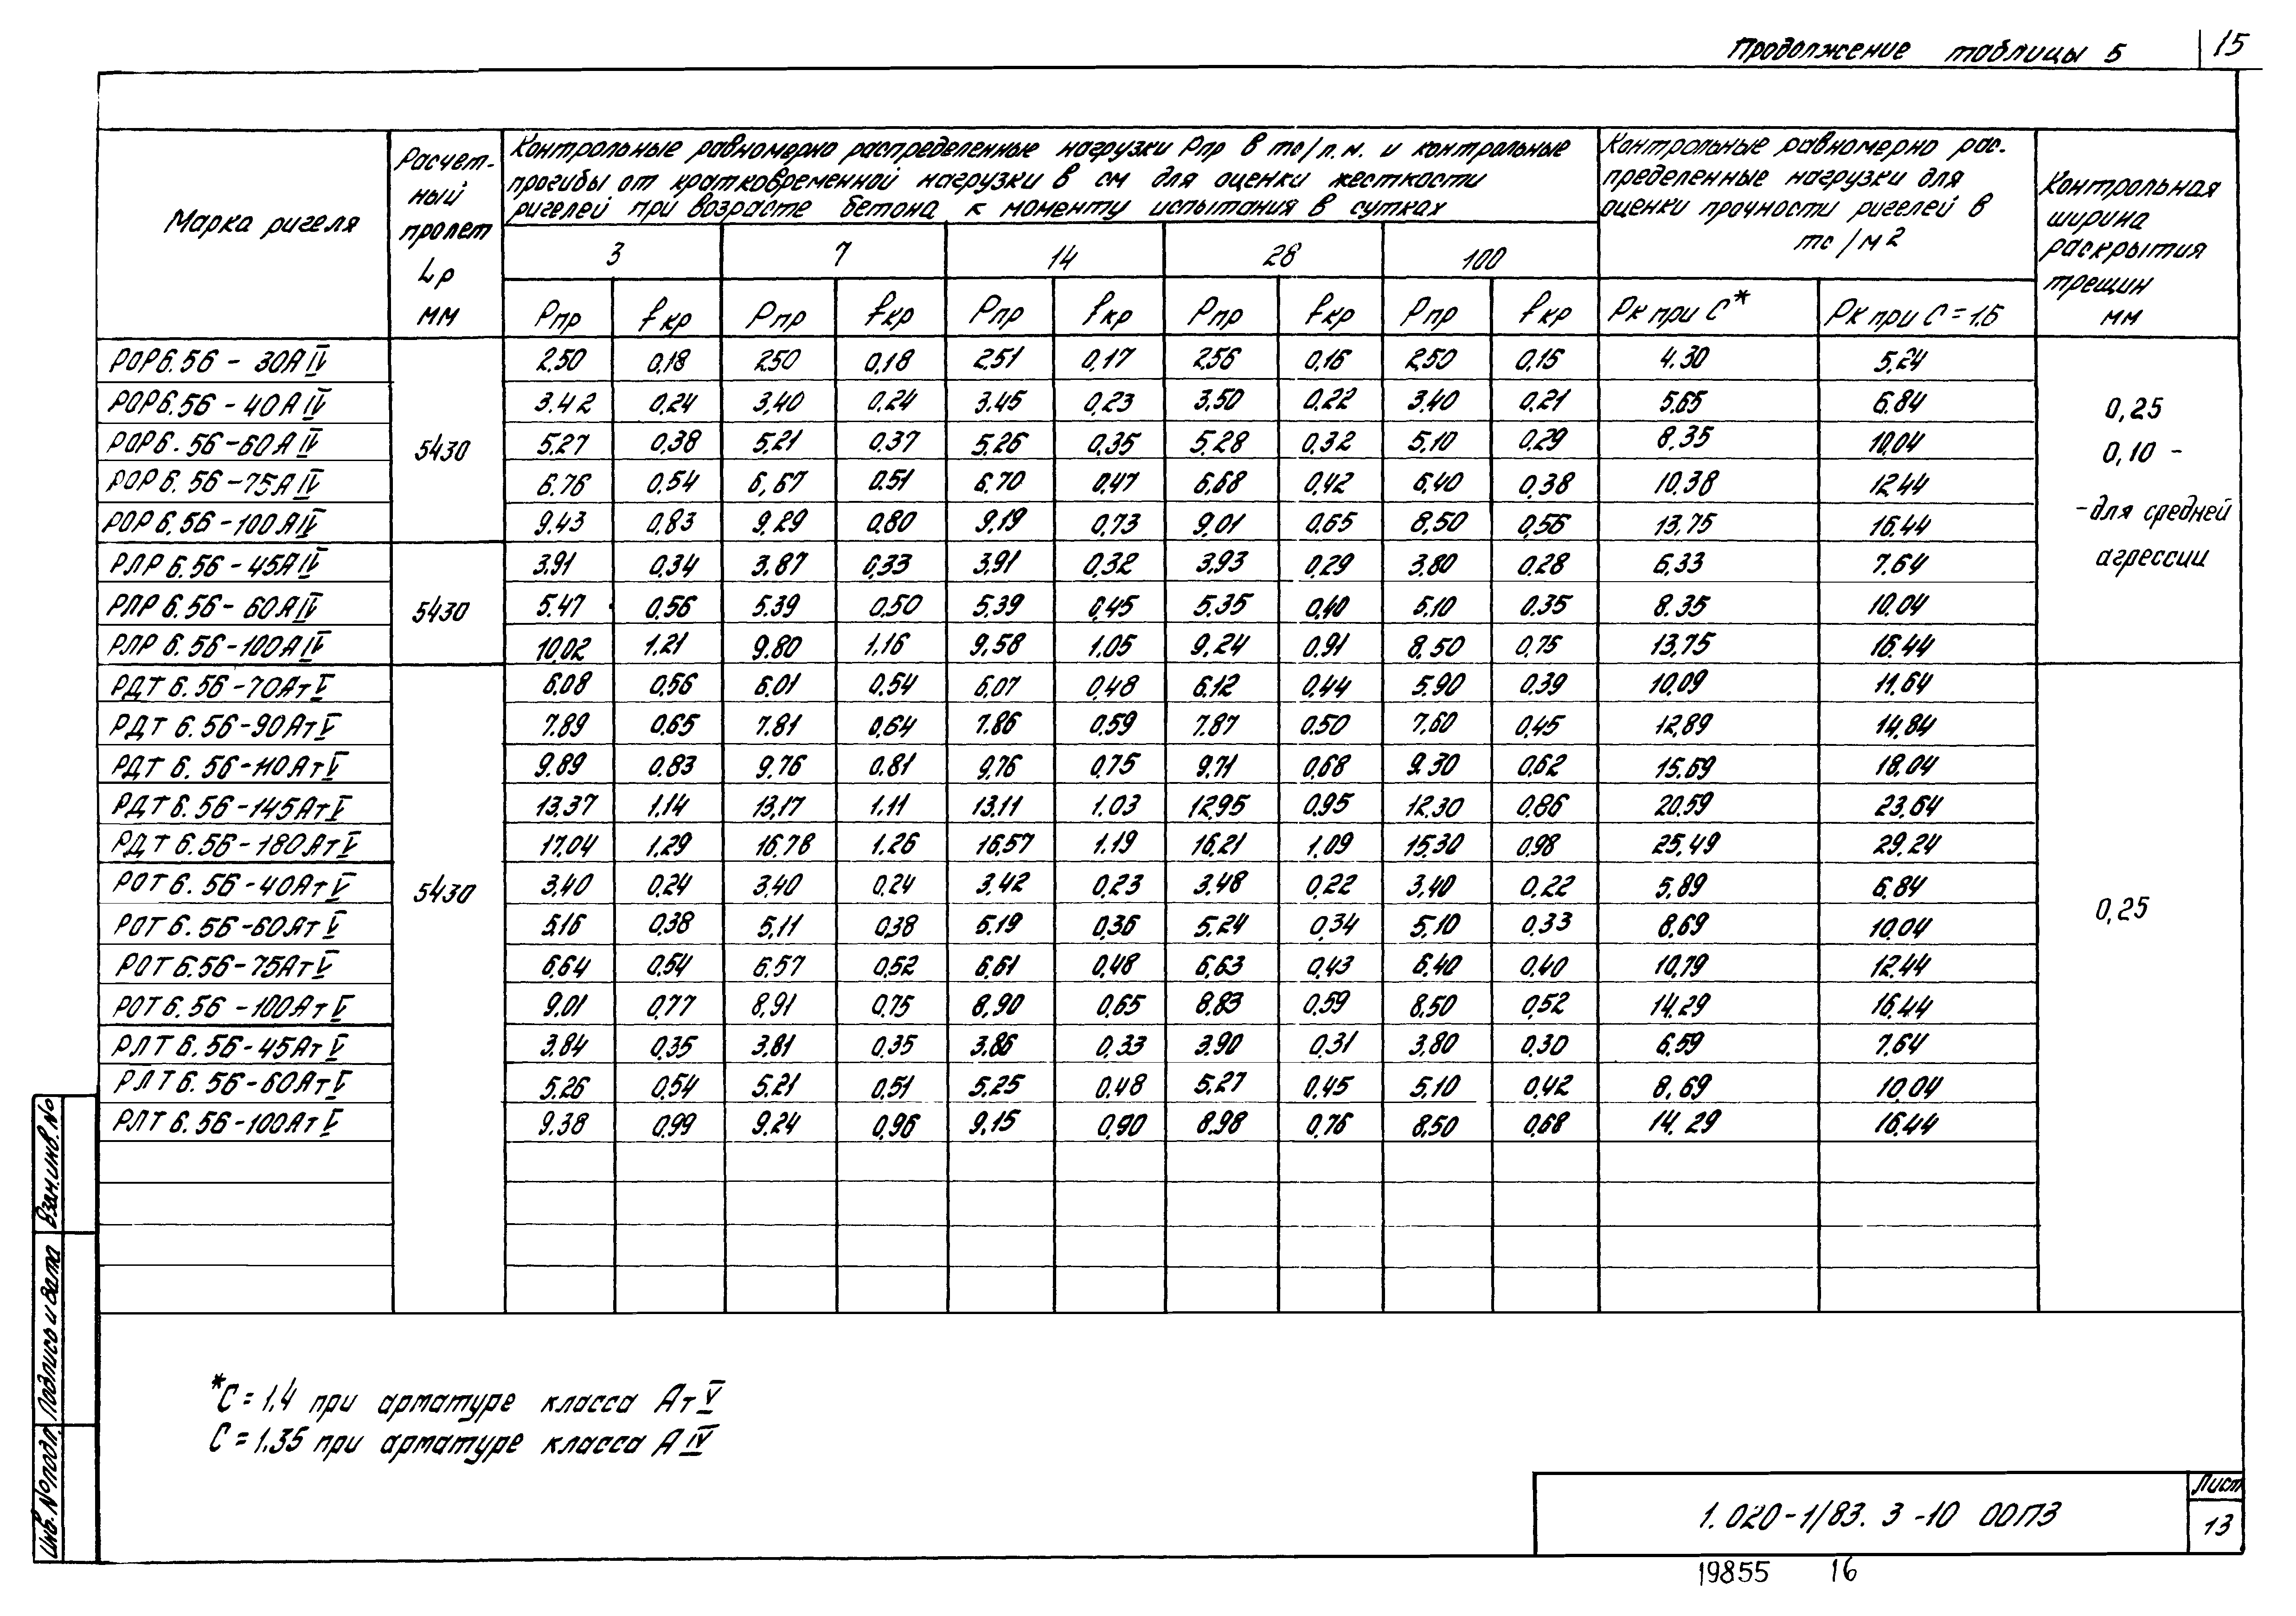 Продолжение таблицы 5 15
Марка ригеля
Расчет-
ный
пролет
Lр
мм
Контрольные равномерно распределенные нагрузки Рпр в тс/п.м. и контрольные
прогибы от кратковременной нагрузки в см для оценки жесткости
ригелей при возрасте бетона к моменту испытания в сутках
Контрольные равномерно рас-
пределенные нагрузки для
оценки прочности ригелей в
тс/м2
Контрольная
ширина
раскрытия
трещин
мм
3 7 14 28 100
Рпр fкр Рпр fкр Рпр fкр Рпр fкр Рпр fкр Рк при С* Рк при С = 1.6
РОР6.56 - 30АIV 2.50 0,18 2.50 0,18 2.51 0,17 2.56 0,16 2,50 0,15 4.30 5,24
РОР6.56 - 40АIV 3.42 0,24 3,40 0,24 3.45 0,23 3,50 0,22 3,40 0,21 5,65 6.84
РОР6.56-60АIV 5,27 0,38 5,21 0,37 5,26 0,35 5,28 0,32 5,10 0,29 8.35 10,04
РОР6.56-75АIV 6.76 0,54 6,67 0.51 6.70 0,47 6,68 0,42 6,40 0,38 10.38 12.44
РОР6.56-100АIV 9.43 0,83 9,29 0,80 9,19 0,73 9,01 0,65 8,50 0,56 13,75 16,44
5430
РЛР6.56-45АIV 3.91 0,34 3.87 0,33 3,91 0,32 3,93 0,29 3,80 0,28 6,33 7.64
РЛР6.56-60АIV 5.47 0,56 5.39 0,50 5,39 0,45 5,35 0,40 5,10 0.35 8.35 10,04
РЛР6.56-100АIV 10,02 1.21 9.80 1.16 9,58 1.05 9,24 0.91 8,50 0,75 13,75 16.44
5430
0,25
0,10 -
-для средней
агрессии
РДТ6.56-70АтV 6.08 0,56 6.01 0,54 6,07 0,48 6.12 0,44 5.90 0,39 10,09 11.64
РДТ6.56-90АтV 7.89 0,65 7.81 0,64 7.86 0,59 7,87 0.50 7,60 0,45 12,89 14,84
РДТ6.56-110АтV 9.89 0,83 9,76 0,81 9,76 0,75 9,71 0,68 9.30 0,62 15.69 18,04
РДТ6.56-145АтV 13,37 1,14 13,17 1,11 13,11 1.03 12,95 0,95 12.30 0,86 20.59 23,64
РДТ6.56-180АтV 17,04 1.29 16,78 1.26 16,57 1.19 16,21 1,09 15,30 0,98 25,49 29.24
РОТ6.56-40АтV 3,40 0,24 3,40 0,24 3,42 0,23 3,48 0,22 3,40 0,22 5,89 6,84
РОТ6.56-60АтV 5,16 0,38 5,11 0,38 5.19 0,36 5.24 0,34 5,10 0,33 8,69 10,04
РОТ6.56-75АтV 6,64 0,54 6,57 0,52 6,61 0,48 6,63 0,43 6,40 0,40 10,79 12,44
РОТ6.56-100АтV 9,01 0,77 8,91 0,75 8,90 0,65 8,83 0,59 8,50 0,52 14,29 16,44
РЛТ6.56-45АтV 3.84 0,35 3.81 0,35 3.86 0,33 3.90 0,31 3,80 0,30 6.59 7,64
РЛТ6.56-60АтV 5,26 0,54 5.21 0,51 5,25 0,48 5,27 0,45 5,10 0,42 8,69 10,04
РЛТ6.56-100АтV 9.38 0,99 9.24 0,96 9,15 0,90 8.98 0,76 8,50 0,68 14.29 16,44
5430
0,25
*С = 1.4 при арматуре класса АтV
С = 1.35 при арматуре класса АIV
Инв.№подл.
Подпись и дата
Взам.инв.№
1.020-1/83. 3-10 00ПЗ
Лист
13
19855 16